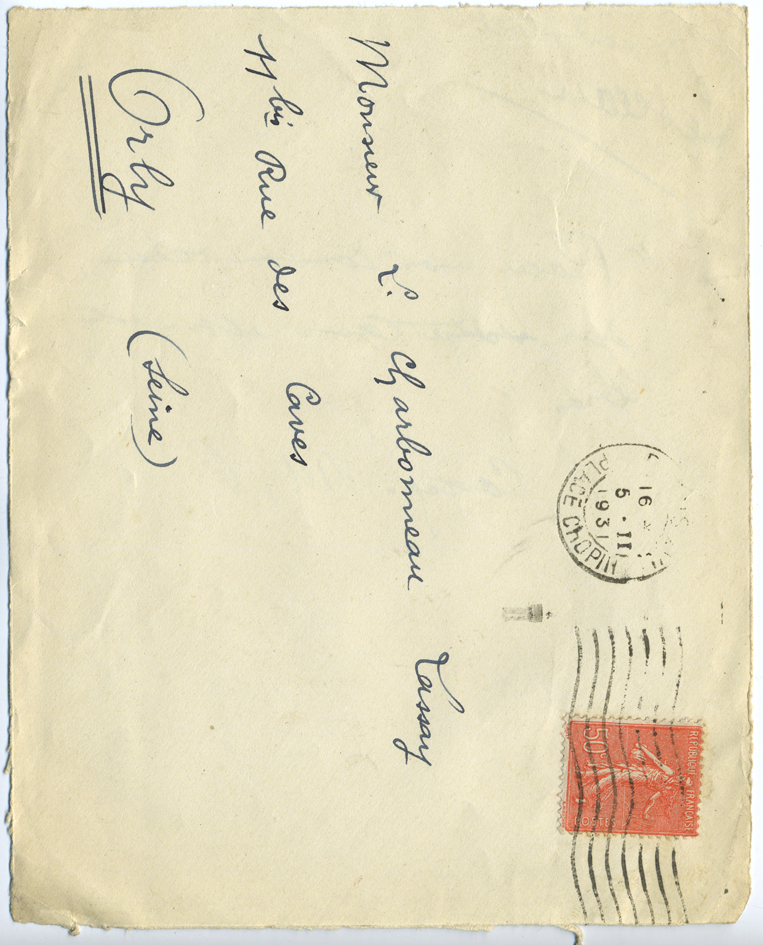 Monsieur L. Charbonneau Lassay
11 bis Rue des Caves
Orly (Seine)
16
5 · II
1931
PLACE CHOPIN
REPUBLIQUE FRANÇAISE
50c
POSTES